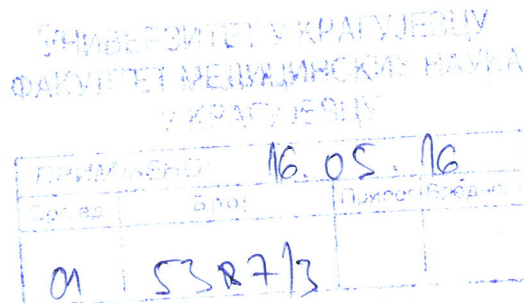 УНИВЕРЗИТЕТ У КРАГУЈЕВЦУ
ФАКУЛТЕТ МЕДИЦИНСКИХ НАУКА
У КРАГУЈЕВЦУ
ПРИМЉЕНО: 16.05.16
Орг.јед. Број Прилог Вредност
01 5387/3